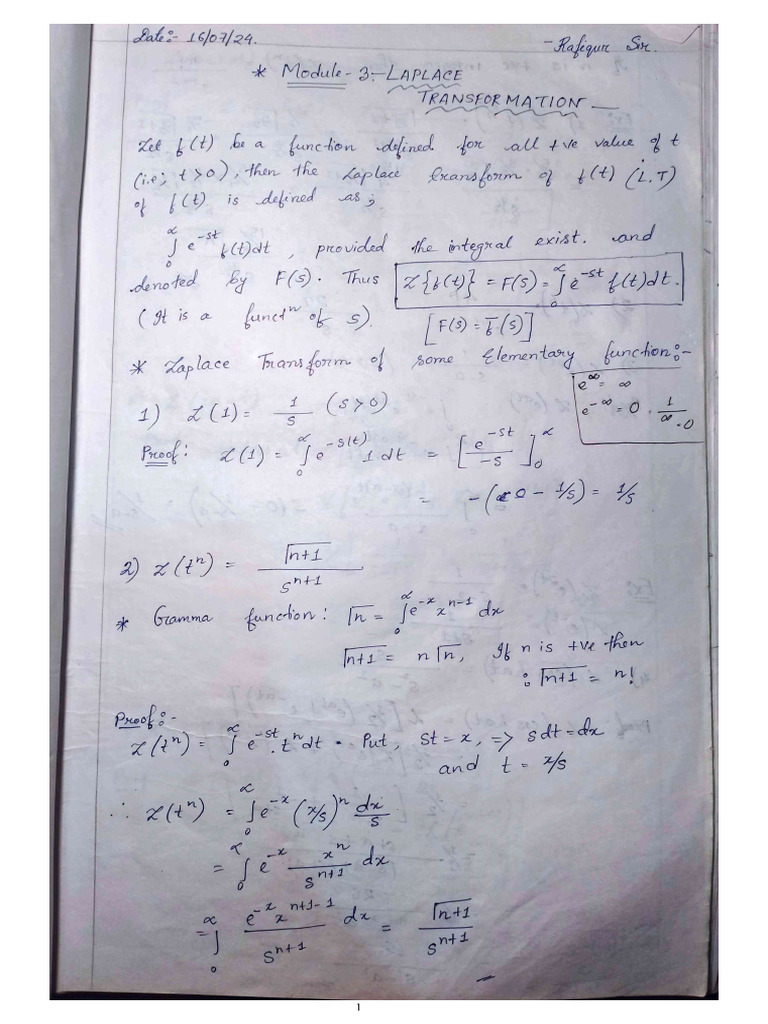 Date:- 16/07/24.
- Rafiqur Sir.
* Module-3:- LAPLACE
TRANSFORMATION —
Let f(t) be a function defined for all +ve value of t
(i.e; t>0), then the Laplace transform of f(t) (L.T)
of f(t) is defined as;
∫₀^∝ e^-st f(t)dt, provided the integral exist. and
denoted by F(s). Thus L{f(t)} = F(s) = ∫₀^∝ e^-st f(t)dt.
(It is a funct^n of s). [F(s) = f̅(s)]
* Laplace Transform of some Elementary function:-
e^∞ = ∞
e^-∞ = 0 · 1/∞ · 0
1) L(1) = 1/s (s>0)
Proof: L(1) = ∫₀^∝ e^-s(t) 1 dt = [e^-st/-s]₀^∝
= -(0 - 1/s) = 1/s
2) L(t^n) = Γn+1/s^n+1
* Gamma function: Γn = ∫₀^∝ e^-x x^n-1 dx
Γn+1 = nΓn, If n is +ve then
: Γn+1 = n!
Proof:-
L(t^n) = ∫₀^∝ e^-st . t^n dt · Put, st = x, => sdt = dx
and t = x/s
∴ L(t^n) = ∫₀^∝ e^-x (x/s)^n dx/s
= ∫₀^∝ e^-x x^n/s^n+1 dx
= ∫₀^∝ e^-x x^n+1-1/s^n+1 dx = Γn+1/s^n+1
1